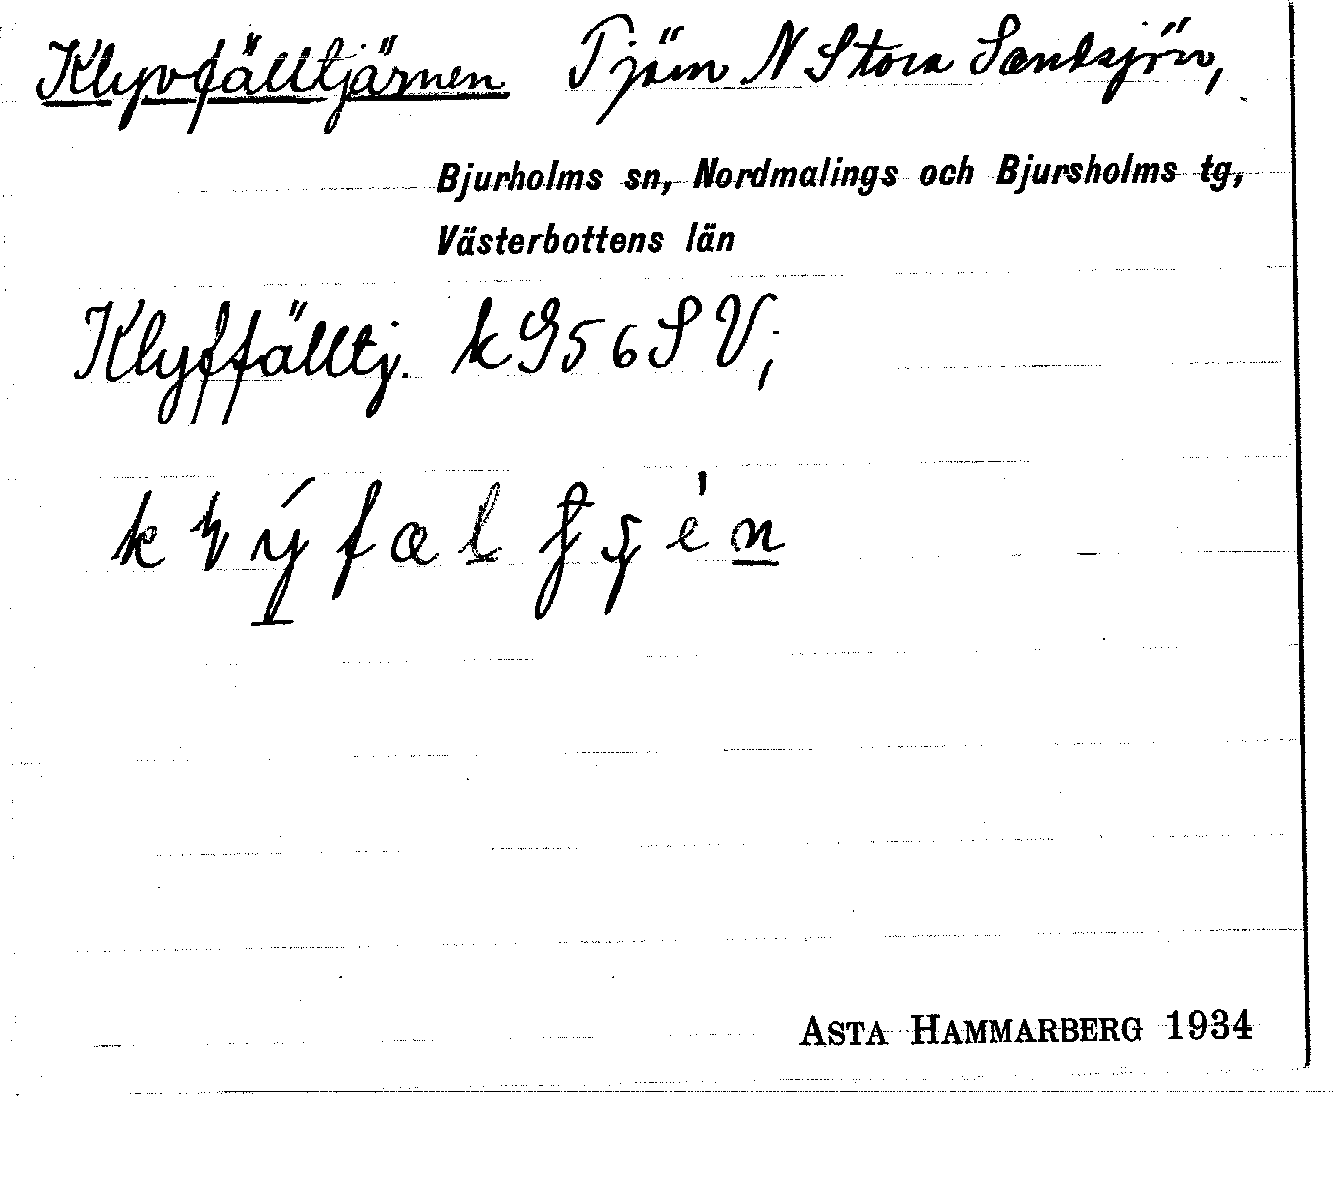 Klyvfälltjärnen Tjärn N Stora Sandsjön,
Bjurholms sn, Nordmalings och Bjursholms tg,
Västerbottens län
Klyffälltj. k G56SV;
ASTA HAMMARBERG 1934